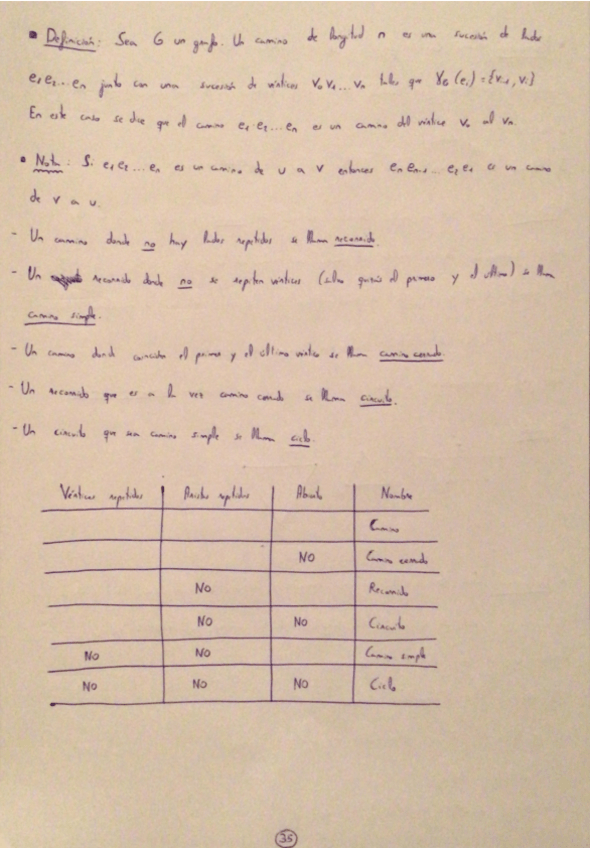 • Definición: Sea G un grafo. Un camino de longitud n es una sucesión de lados
e₁e₂...eₙ junto con una sucesión de vértices v₀v₁...vₙ tales que γG(eᵢ)={vᵢ₋₁,vᵢ}
En este caso se dice que el camino e₁·e₂...eₙ es un camino del vértice v₀ al vₙ.
• Nota: Si e₁e₂...eₙ es un camino de u a v entonces eₙeₙ₋₁...e₂e₁ es un camino
de v a u.
- Un camino donde no hay lados repetidos se llama recorrido.
- Un recorrido donde no se repiten vértices (salvo quizás el primero y el último) se llama
camino simple.
- Un camino donde coinciden el primer y el último vértice se llama camino cerrado.
- Un recorrido que es a la vez camino cerrado se llama circuito.
- Un circuito que sea camino simple se llama ciclo.
Vértices repetidos Aristas repetidas Abierto Nombre
Camino
NO Camino cerrado
NO Recorrido
NO NO Circuito
NO NO Camino simple
NO NO NO Ciclo
35